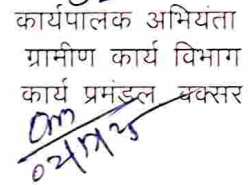 कार्यपालक अभियंता
ग्रामीण कार्य विभाग
कार्य प्रमंडल बक्सर